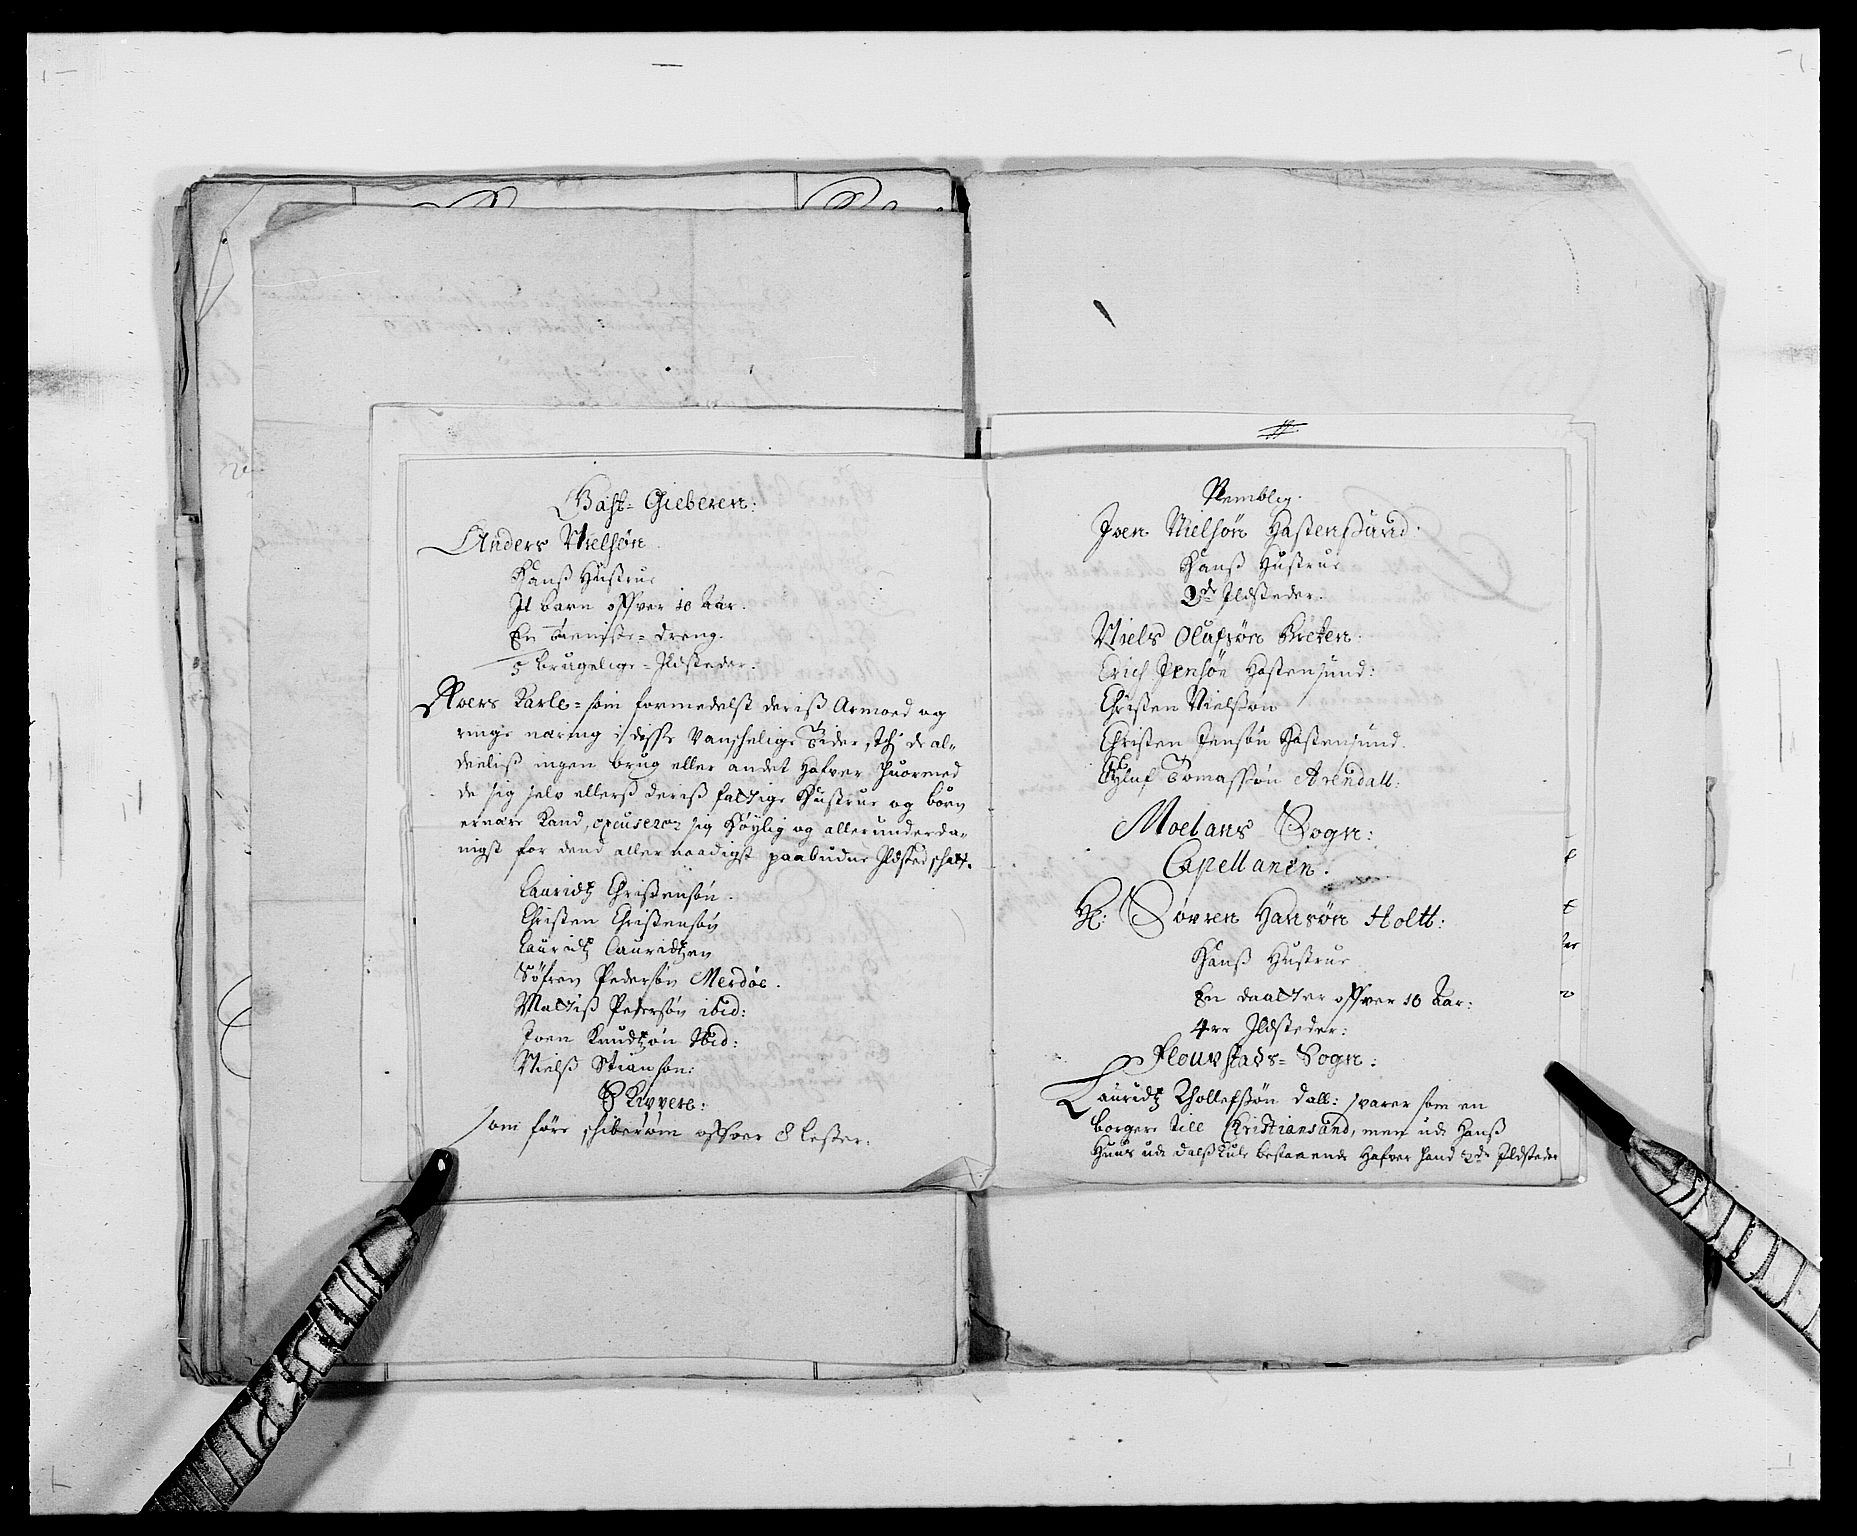 Gast-Gieberen:
Anders Nielsøn
Hanß Hustrue
It barn offver 10 Aar.
En tieniste-dreng.
5 brugelige-Ildsteder.
Roers Karle-som formedelst deriß Armoed og
ringe næring i disse vanschelige Tider, sth de al-
deeliß ingen brug eller andet Hafver huormed
de sig selv ellerß deriß fattige Hustrue og børn
ernære kand, excuserer sig høylig og allerunderda-
nigst for dend allernaadigst paabudne Ildsted schatt.
Lauridtz Christensøn.
Christen Christensøn
Lauridtz Lauridtzen
Søfren Pedersøn Merdøe.
Mattiß Pedersøn ibid:
Joen Knudtzøn Ibid:
Nielß Stiansøn:
Skippere:
som føre schiberom offver 8 lester.
Nemblig.
Joen Nielsøn Hastensund:
Hanß Hustrue
2de Ildsteder.
Niels Olufsøn
Erich Jensøn Hastensund:
Christen Nielsøn
Christen Jensøn Hastensund.
Oluf Tomassøn Arendall:
Moelans Sogn:
Capellanen.
Hr: Søvren Hansøn Holtt:
Hanß Hustrue
En daatter offver 10 Aar:
4re Ildsteder:
Sogn:
Lauridtz Thollefsøn Dall: svarer som en
borgere till Christiansand, men udi Hanß
Huus udi bestaaende Hafver hand 2de Ildsteder